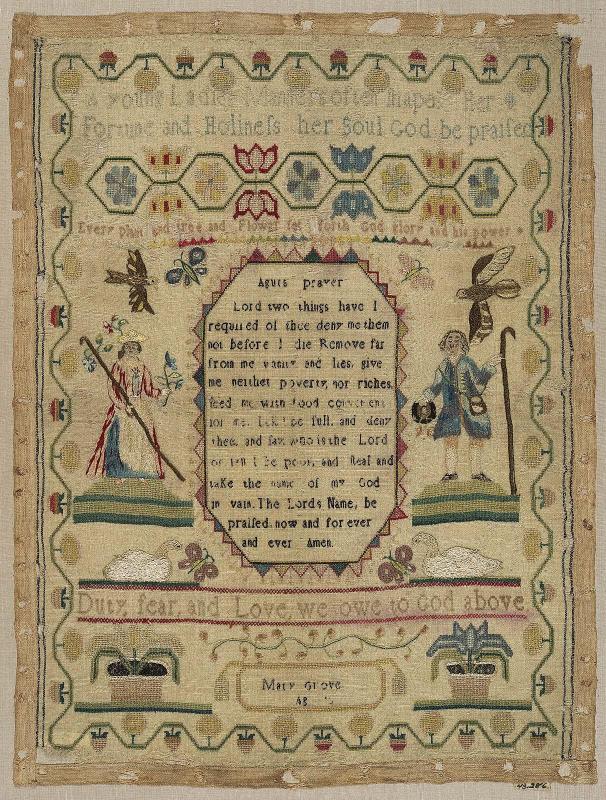 A Young Ladies often her
Fortune and Holineſs her Soul God be praiſed
Every plant and tree and Flower ſet forth God glory and his power
Agurs prayer
Lord two things have I
required of thee deny me them
not before I die Remove far
from me vanity and lies, give
me neither poverty, nor riches,
feed me with food convenient
for me. Leſt I be full, and deny
thee, and ſay, who is the Lord
or leſt I be poor, and ſteal and
take the name of my God
in vain. The Lords Name, be
praiſed now and for ever
and ever Amen.
Duty, fear, and Love, we owe to God above
Mary Grove
43.286